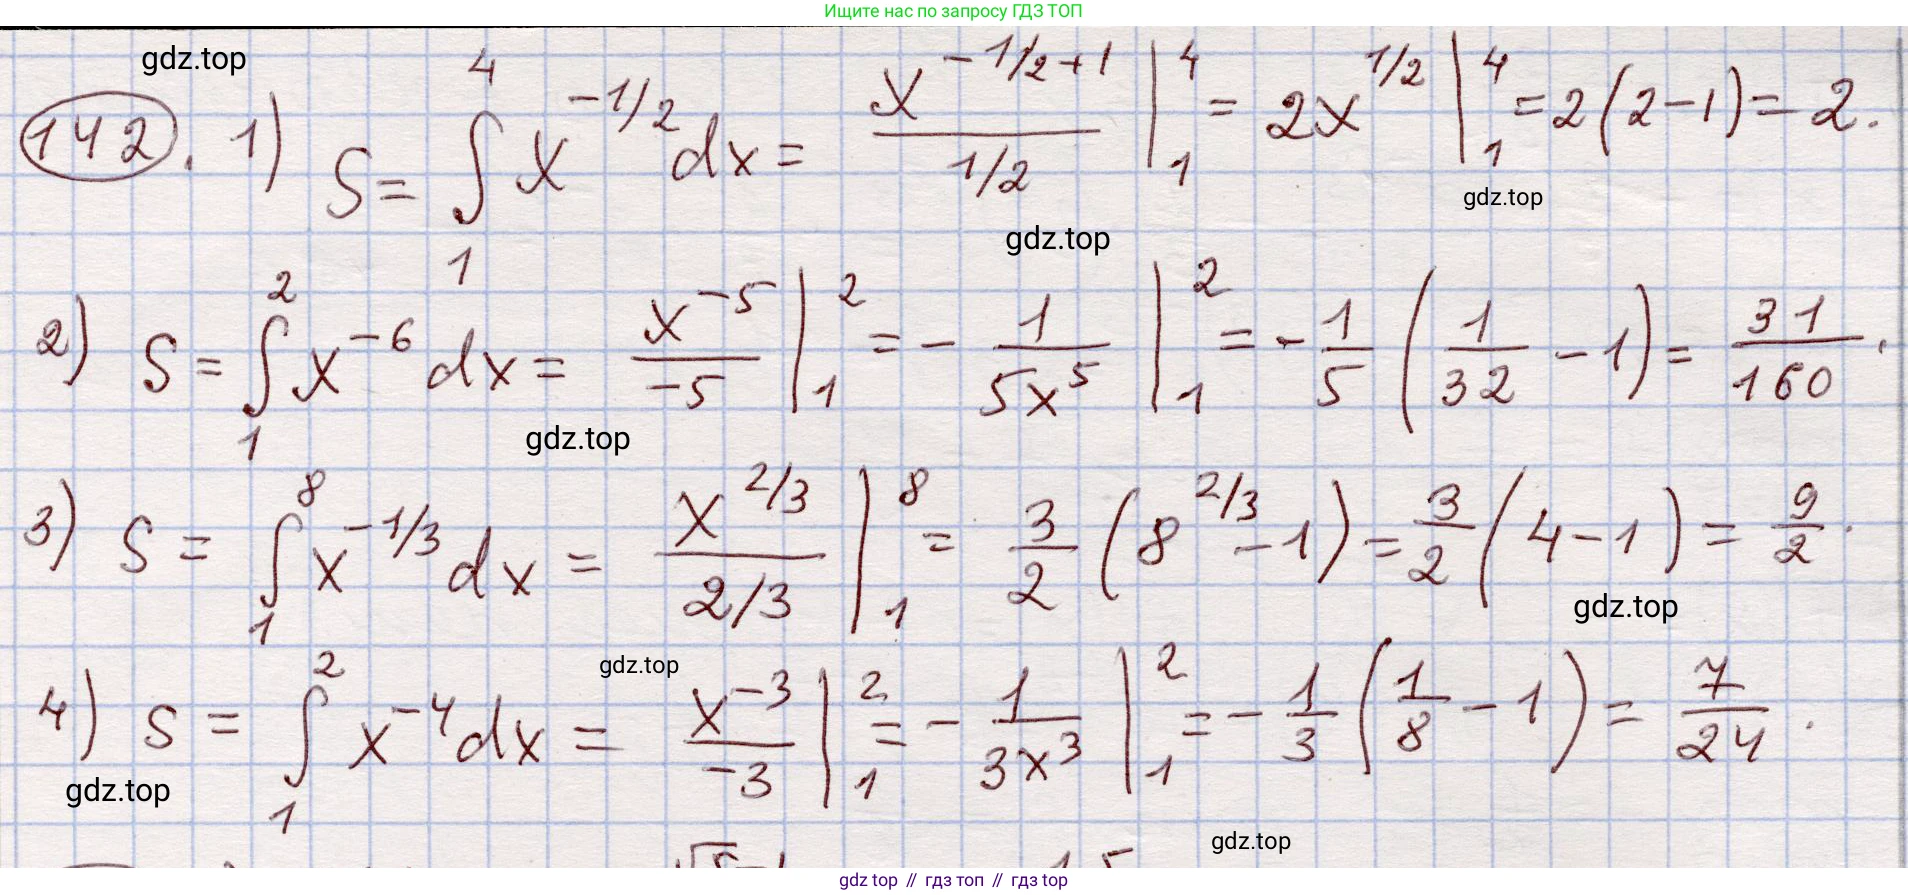 Ищите нас по запросу ГДЗ ТОП
gdz.top
142. 1) S = ∫₁⁴ x^(-1/2) dx = x^(-1/2+1) / (1/2) |₁⁴ = 2x^(1/2) |₁⁴ = 2(2-1) = 2.
gdz.top
gdz.top
2) S = ∫₁² x^(-6) dx = x^(-5) / (-5) |₁² = - 1/(5x^5) |₁² = - 1/5 (1/32 - 1) = 31/160.
gdz.top
3) S = ∫₁⁸ x^(-1/3) dx = x^(2/3) / (2/3) |₁⁸ = 3/2 (8^(2/3) - 1) = 3/2 (4-1) = 9/2.
gdz.top
gdz.top
4) S = ∫₁² x^(-4) dx = x^(-3) / (-3) |₁² = - 1/(3x^3) |₁² = - 1/3 (1/8 - 1) = 7/24.
gdz.top
gdz.top
gdz top // гдз топ // гдз top